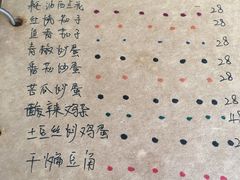 油西兰花 28
红烧茄子
鱼香茄子 28
青椒炒蛋 28
番茄炒蛋 28
苦瓜炒蛋 28
酸辣鸡杂
土豆丝炒鸡蛋
干煸豆角